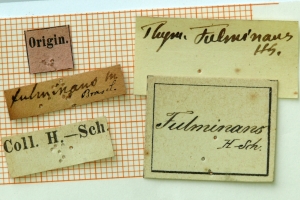 Origin.
Thym. Fulminans
HS.
fulminans
Brasil.
Coll. H.—Sch.
Fulminans
H-Sch.